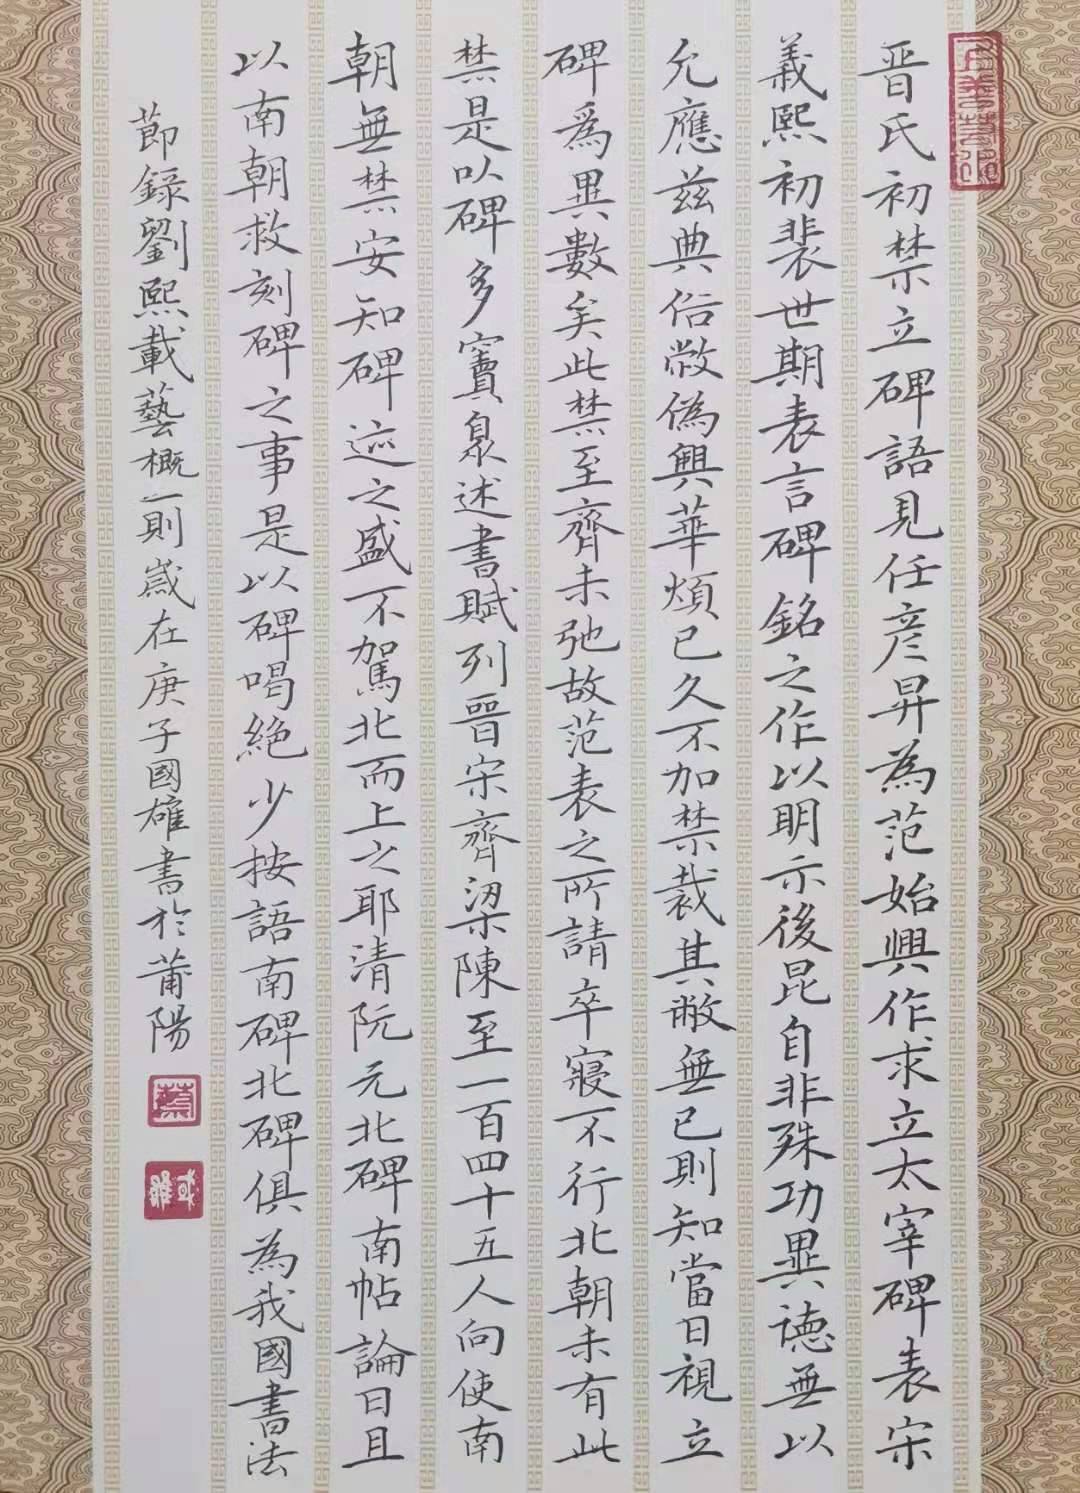 晋氏初禁立碑語見任彦昇為范始興作求立太宰碑表宋
義熙初裴世期表言碑銘之作以明示後昆自非殊功異德無以
允應茲典俗敝偽興華煩已久不加禁裁其敝無已則知當日視立
碑爲異數矣此禁至齊未弛故范表之所請卒寢不行北朝未有此
禁是以碑多竇臮述書賦列晉宋齊梁陳至一百四十五人向使南
朝無禁安知碑迹之盛不駕北而上之耶清阮元北碑南帖論曰且
以南朝敕刻碑之事是以碑喝絕少按語南碑北碑俱為我國書法
節録劉熙載藝概一則歲在庚子國雄書於莆陽
蔡